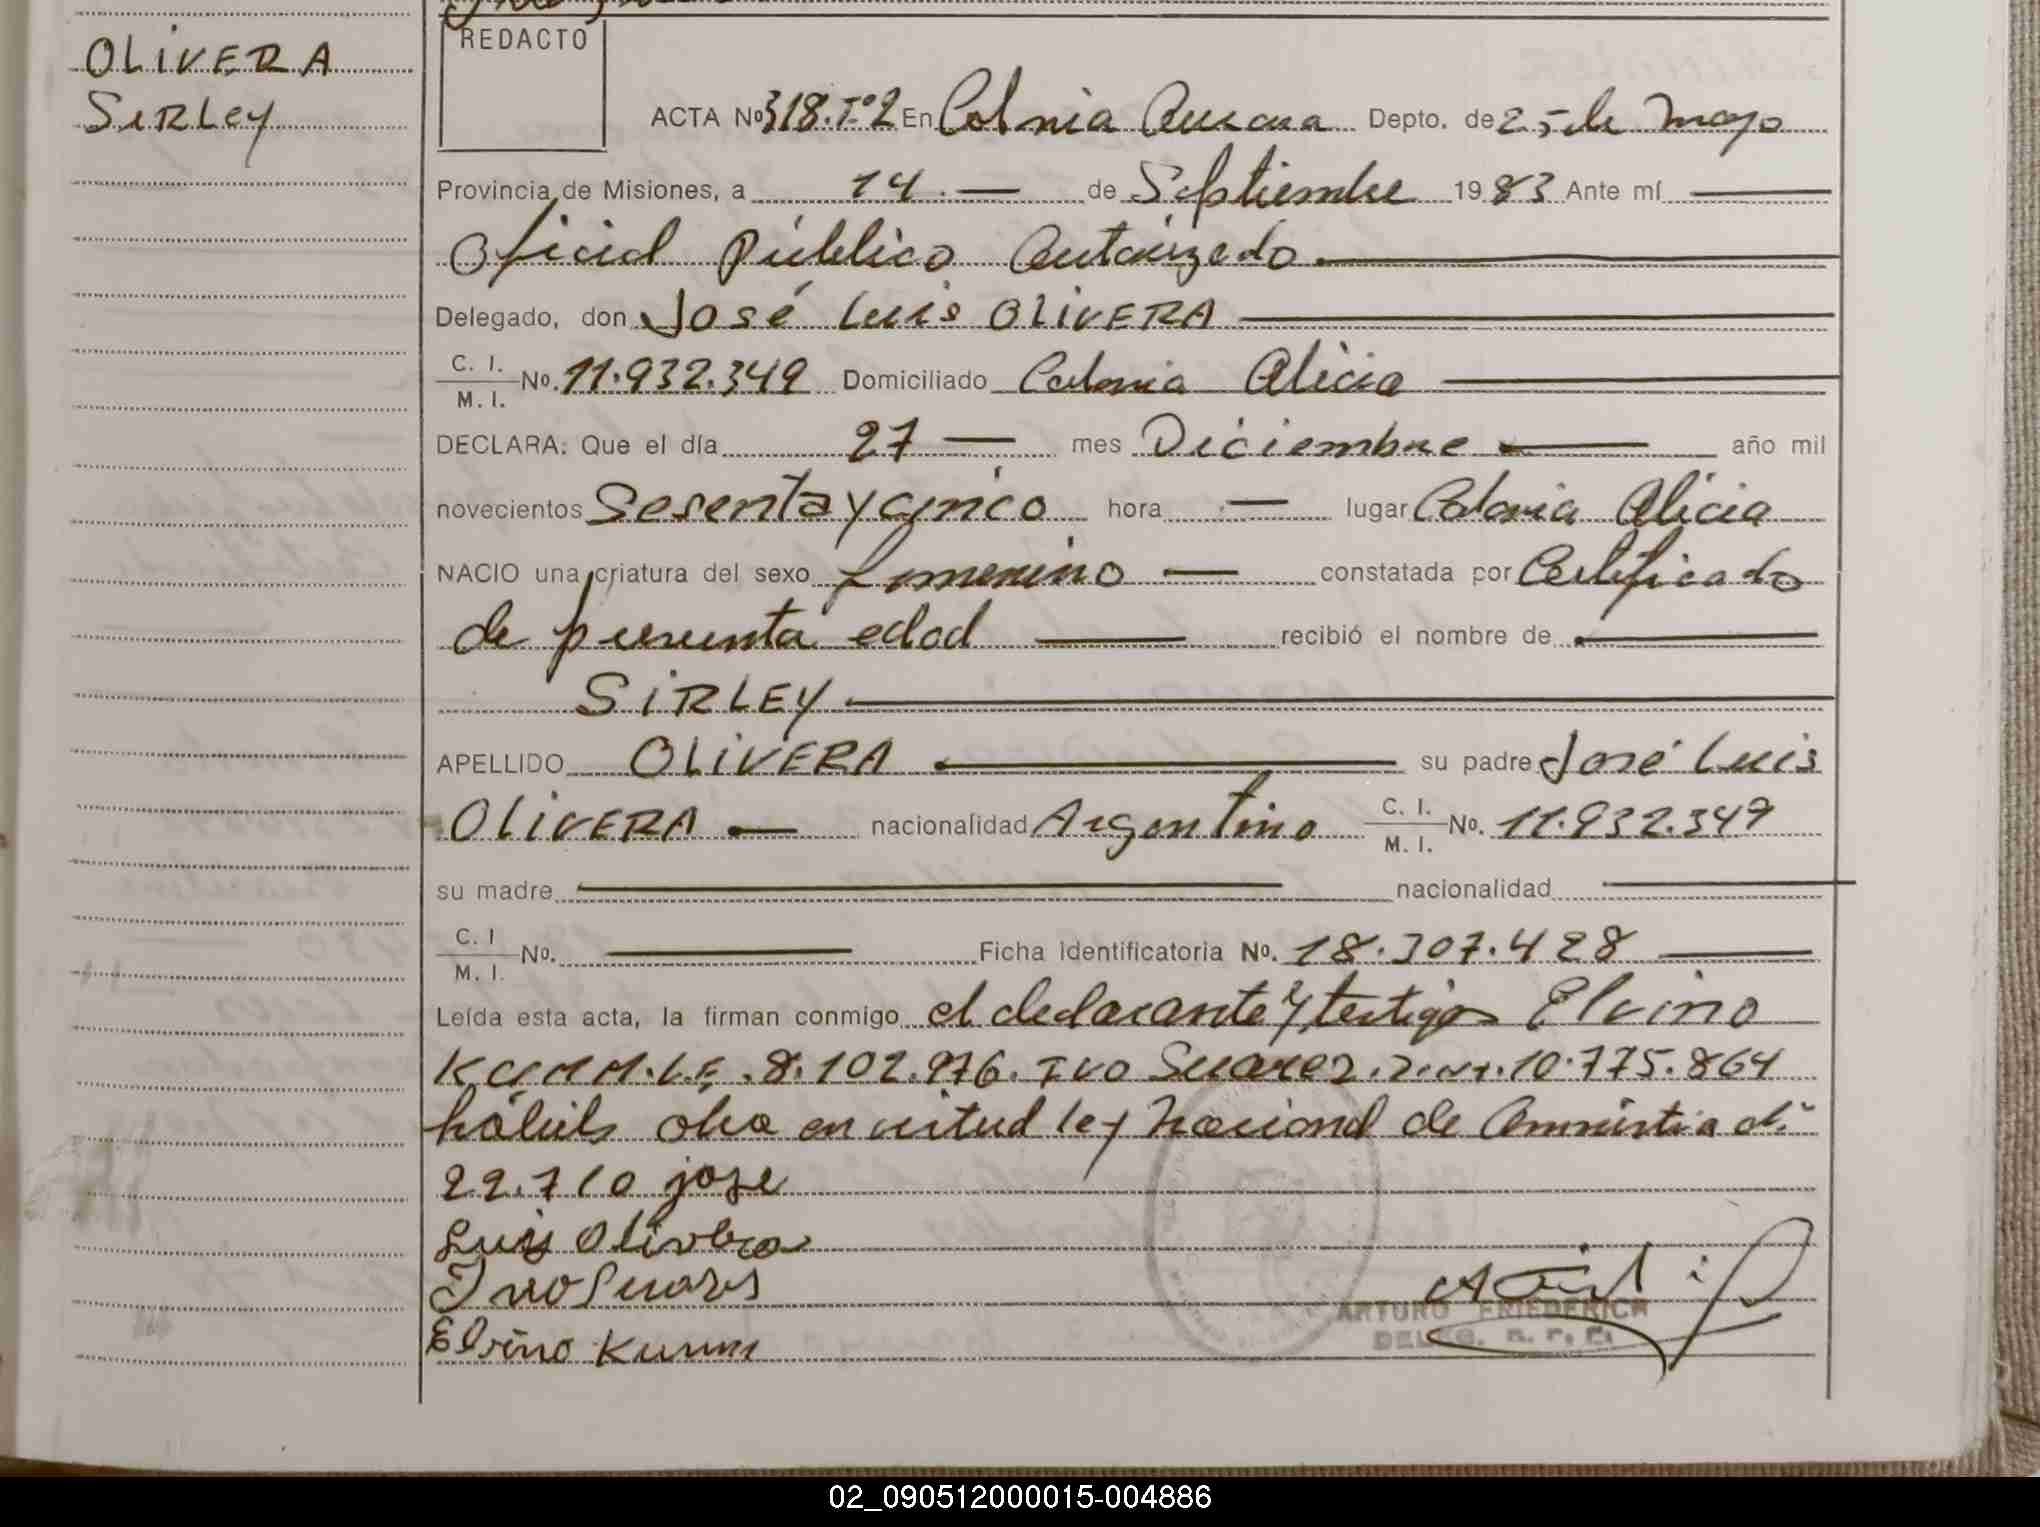 OLIVERA
SIRLEY
REDACTO
ACTA Nº 318.Tº2 En Colonia Aurora Depto. de 25 de Mayo
Provincia de Misiones, a 14.— de Septiembre 1983 Ante mí —
Oficial Público Autorizado.—
Delegado, don José Luis OLIVERA —
C. I.
M. I. No. 11.932.349 Domiciliado Colonia Alicia —
DECLARA: Que el día 27 — mes Diciembre — año mil
novecientos Sesenta y cinco hora — lugar Colonia Alicia
NACIO una criatura del sexo femenino — constatada por Certificado
de presunta edad — recibió el nombre de —
SIRLEY —
APELLIDO OLIVERA — su padre José Luis
OLIVERA — nacionalidad Argentino C. I.
M. I. No. 11.932.349
su madre — nacionalidad —
C. I
M. I. No. — Ficha identificatoria No. 18.307.428 —
Leída esta acta, la firman conmigo el declarante y testigos Elvino
KUMM. L.E. 8.102.976. IVO Suarez. D.N.I. 10.775.864
hábiles obra en virtud ley Nacional de Amnistia
22.710 jose
Luis Olivera
Ivo Suares
Elvino Kumm
ARTURO FRIEDERICH
DELEG. R. P. P.
02_090512000015-004886